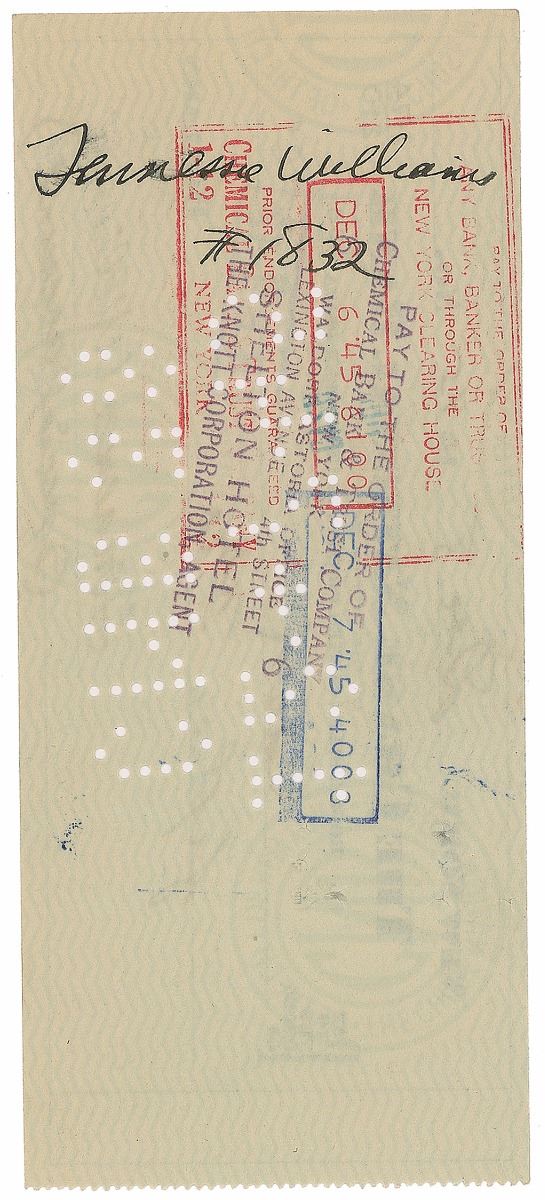 Tennessee Williams
#1832
PAY TO THE ORDER OF
ANY BANK, BANKER OR TRUST
OR THROUGH THE
NEW YORK CLEARING HOUSE
DEC 6 '45 8 00
PRIOR ENDORSEMENTS GUARANTEED
CHEMICAL
NEW YORK
PAY TO THE ORDER OF
CHEMICAL BANK & COMPANY
NEW YORK
WALDORF ASTORIA OFFICE
LEXINGTON AVENUE
STREET
SHELTON HOTEL
THE KNOTT CORPORATION AGENT
6
DEC 7 '45 4 00 8